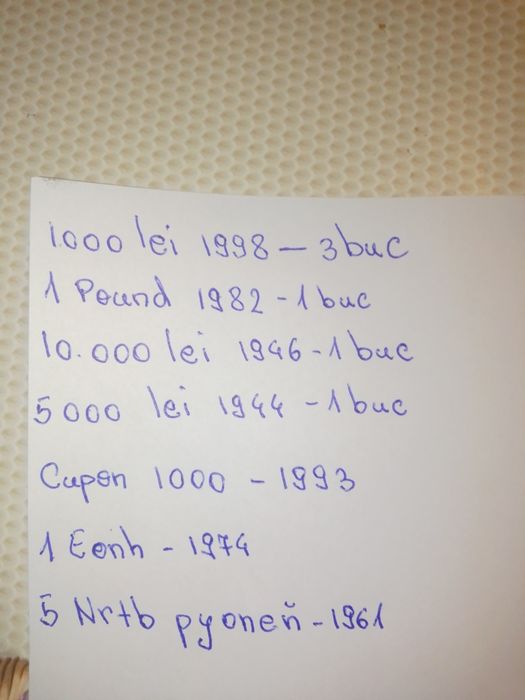 1000 lei 1998 - 3 buc
1 Pound 1982 - 1 buc
10.000 lei 1946 - 1 buc
5000 lei 1944 - 1 buc
Cupon 1000 - 1993
1 Eenh - 1974
5 Nrtb pyoneň - 1961